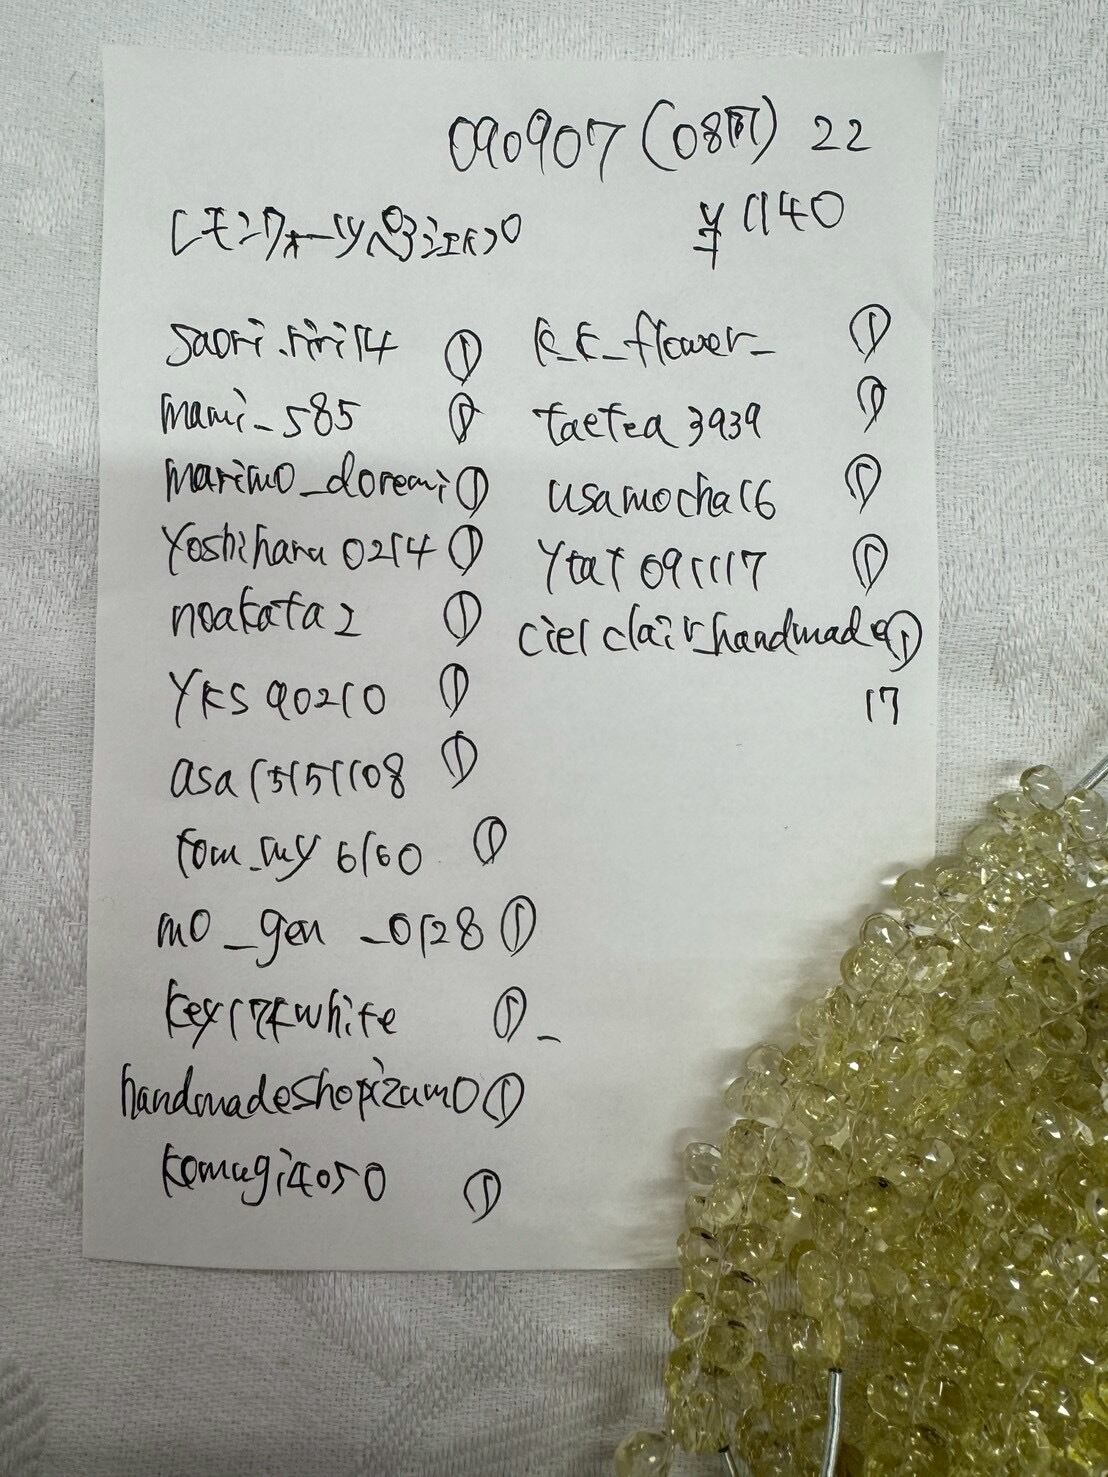 090907 (08M) 22
レモンクォーツペアシェイプ ¥1140
saori.riri14 ①
mami_585 ①
marimo_doremi ①
yoshiharu0214 ①
noakata2 ①
YKS90210 ①
asa15151108 ①
tom_my6160 ①
mo_gen_0128 ①
key174white ①
handmadeshopizumo ①
komugi4050 ①
k_k_flower_ ①
taetea3939 ①
usamocha16 ①
ytat091117 ①
cielclair_handmade ①
17